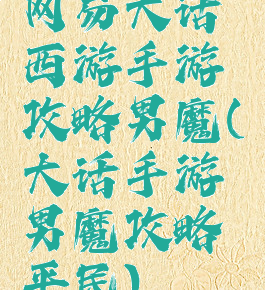 网易大话
西游手游
攻略男魔(
大话手游
男魔攻略
平民)